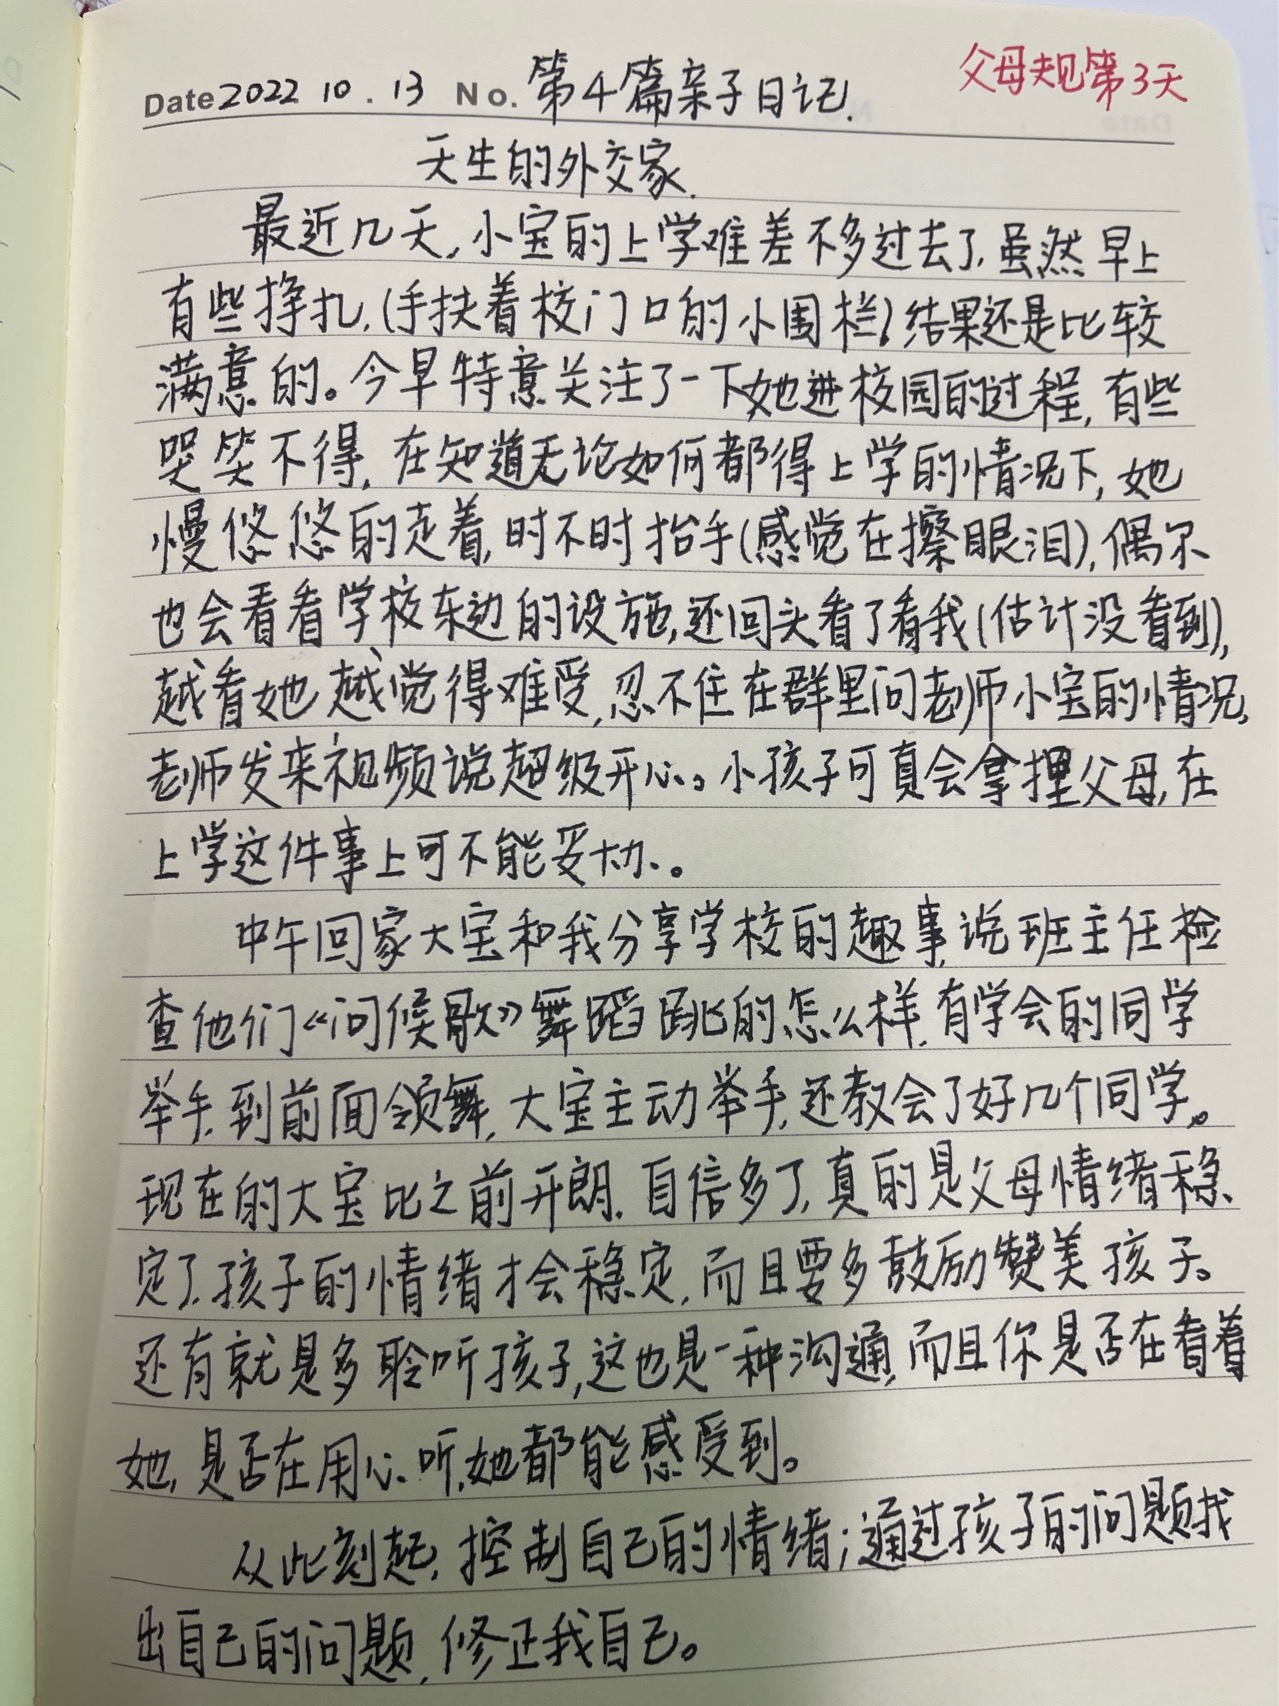 父母规第3天
Date 2022 10 . 13 No. 第4篇亲子日记.
天生的外交家.
最近几天,小宝的上学难差不多过去了,虽然早上
有些挣扎,(手扶着校门口的小围栏)结果还是比较
满意的。今早特意关注了一下她进校园的过程,有些
哭笑不得,在知道无论如何都得上学的情况下,她
慢悠悠的走着,时不时抬手(感觉在擦眼泪),偶尔
也会看看学校东边的设施,还回头看了看我(估计没看到),
越看她越觉得难受,忍不住在群里问老师小宝的情况,
老师发来视频说超级开心。小孩子可真会拿捏父母,在
上学这件事上可不能妥切、。
中午回家大宝和我分享学校的趣事,说班主任检
查他们《问候歌》舞蹈跳的怎么样,有学会的同学
举手,到前面领舞,大宝主动举手,还教会了好几个同学。
现在的大宝比之前开朗.自信多了,真的是父母情绪稳
定了,孩子的情绪才会稳定,而且要多鼓励赞美孩子。
还有就是多聆听孩子,这也是一种沟通,而且你是否在看着
她,是否在用心听,她都能感受到。
从此刻起,控制自己的情绪;通过孩子的问题找
出自己的问题,修正我自己。